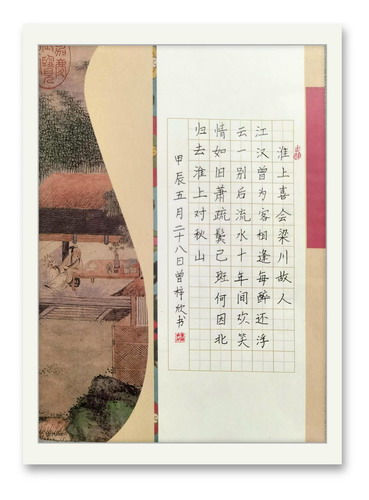 淮上喜会梁川故人
江汉曾为客相逢每醉还浮
云一别后流水十年间欢笑
情如旧萧疏鬓已斑何因北
归去淮上对秋山
甲辰五月二十八日曾梓欣书